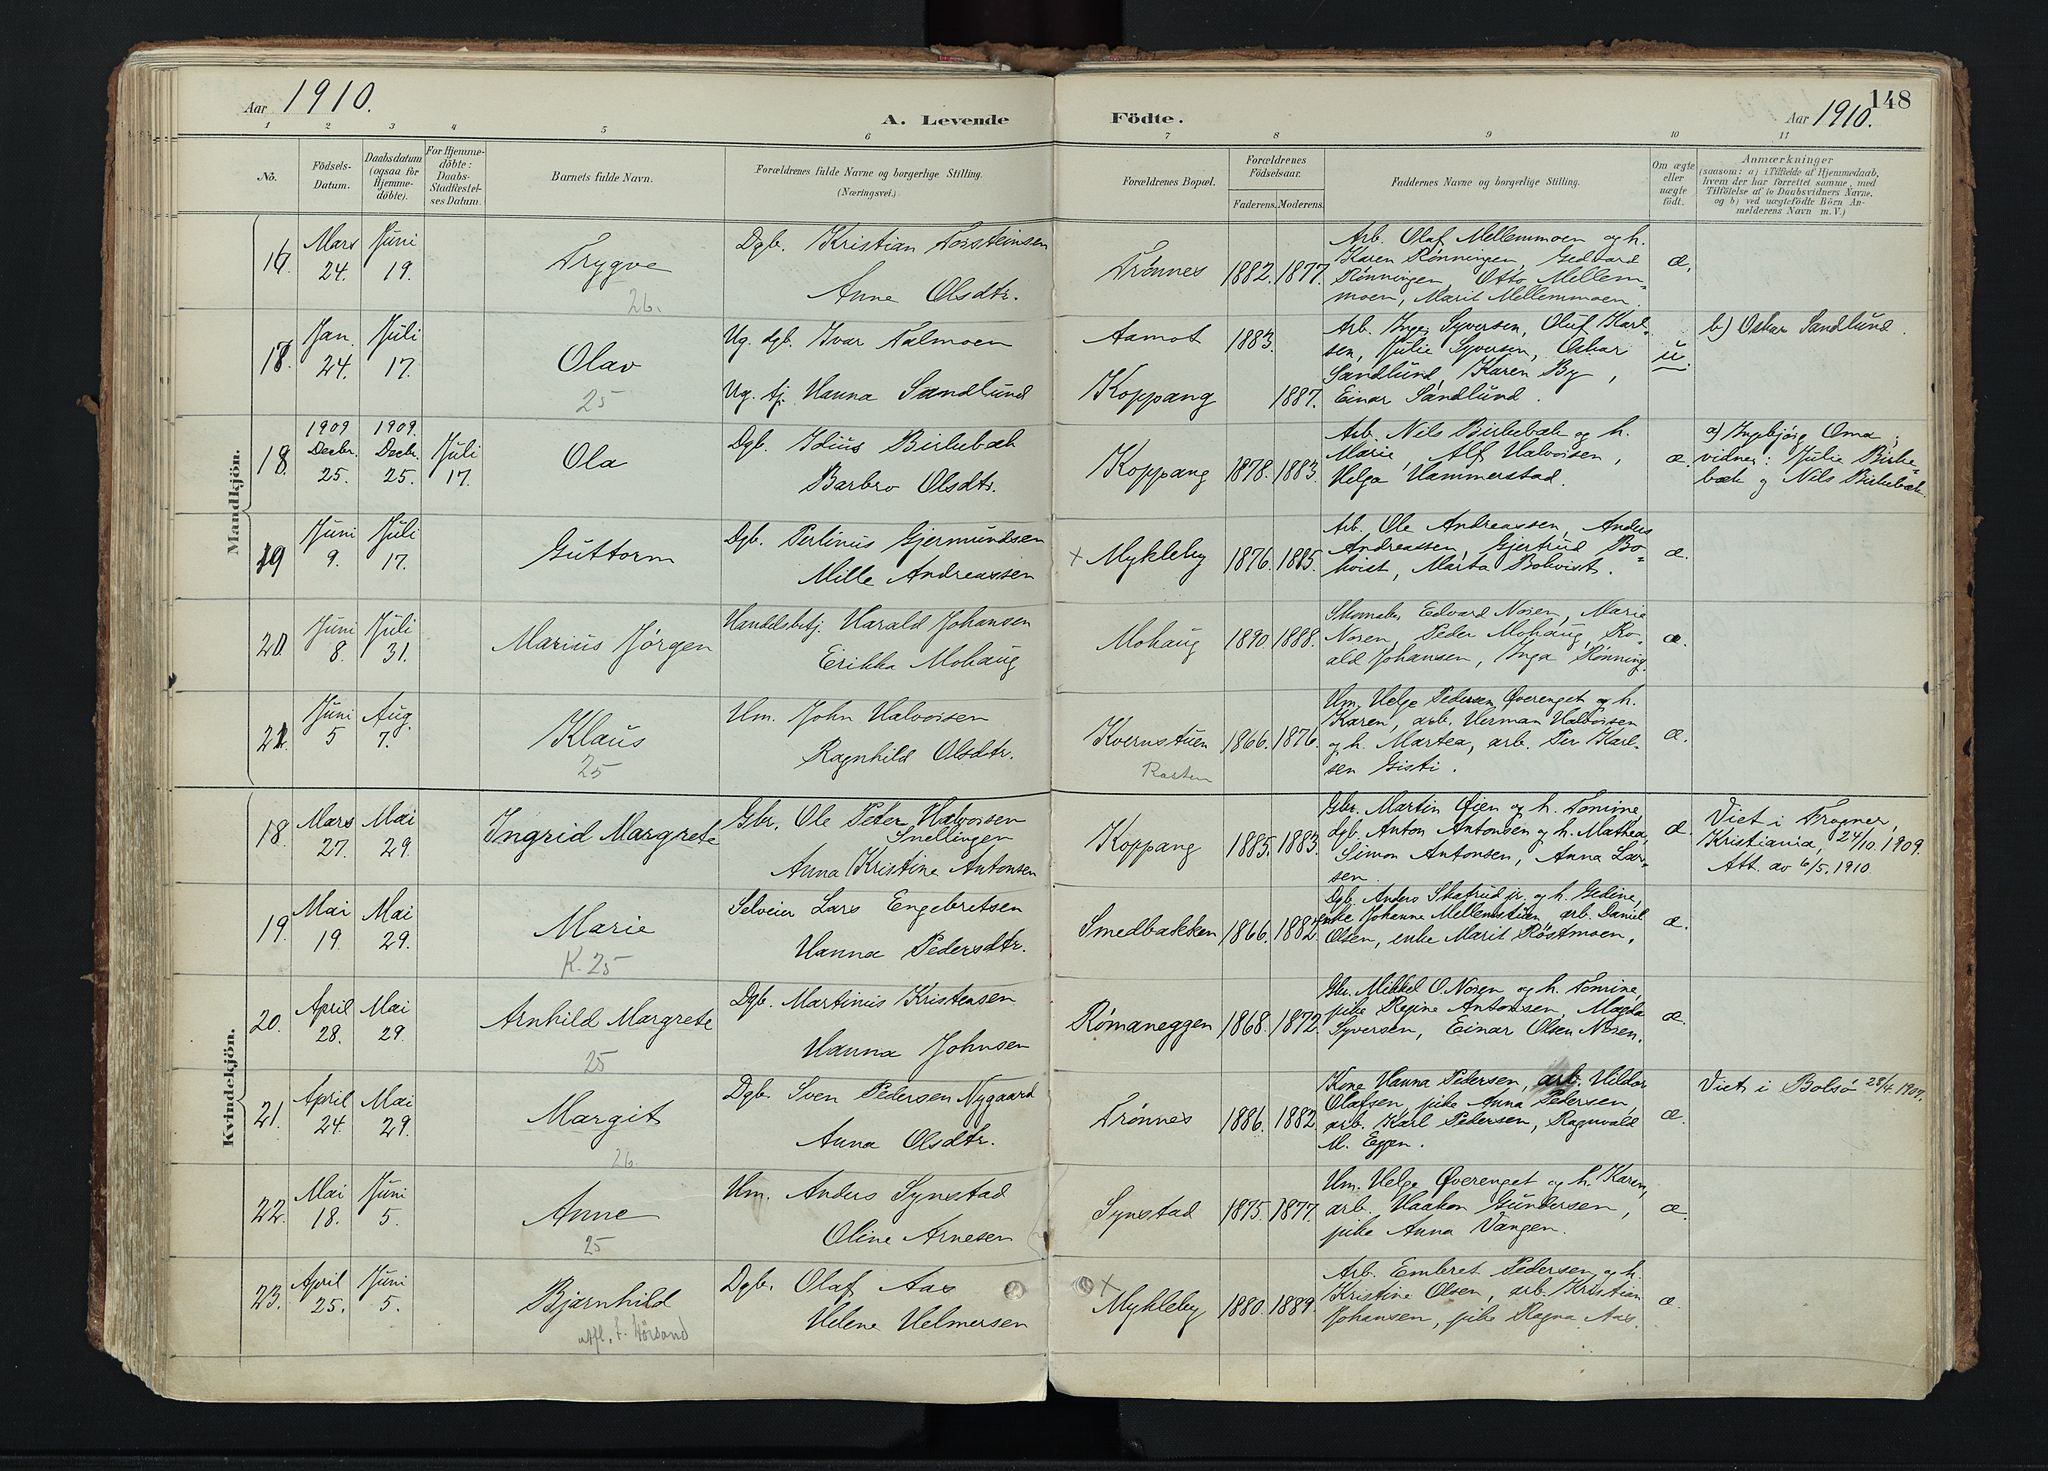 Aar 1910.
A. Levende
Födte.
Aar 1910.
148
1 2 3 4 5 6 7 8 9 10 11
No.
Födsels-
Datum.
Daabsdatum
(ogsaa för
Hjemme-
döbte).
For Hjemme-
döbte:
Daabs-
Stadfæstel-
ses Datum.
Barnets fulde Navn.
Forældrenes fulde Navne og borgerlige Stilling.
(Næringsvei.)
Forældrenes Bopæl.
Forældrenes
Födselsaar.
Faderens. Moderens.
Faddernes Navne og borgerlige Stilling.
Om ægte
eller
uægte
födt.
Anmærkninger
(saasom: a) i Tilfælde af Hjemmedaab,
hvem der har forrettet samme, med
Tilföielse af to Daabsvidners Navne.
og b) ved uægtefödte Börn An-
melderens Navn m. V.)
Mandkjön.
Mars
24.
Juni
19.
Trygve
26.
Dgb. Kristian Torsteinsen
Anne Olsdtr.
Trønnes
1882. 1877.
Arb. Olaf Mellemmoen og h.
Karen Rønningen, Gedvard
Rønningen, Otto Mellem-
moen, Marit Mellemmoen.
æ.
18.
Jan.
24.
Juli
17.
Olav
25
Ug. dgb. Ivar Talmoen
Ug. tj. Hanna Sandlund
Aamot
Koppang
1883.
1887.
Arb. Inga Syversen, Oluf Karl-
sen, Julie Syversen, Oskar
Sandlund, Karen By,
Einar Sandlund.
u.
b) Oskar Sandlund.
18.
1909
Decbr.
25.
1909.
Decbr.
25.
Juli
17.
Ola
Dgb. Idius Birkebæk
Barbro Olsdtr.
Koppang
1878. 1883.
Arb. Nils Birkebæk og h.
Marie, Alf Halvorsen,
Helga Hammerstad.
æ.
a) Ingebjørg Oma,
vidner: Julie Birke-
bæk og Nils Birkebæk.
19
Juni
9.
Juli
17.
Guttorm
Dgb. Perlinus Gjermundsen
Mille Andreassen
× Mykleby
1876. 1885.
Arb. Ole Andreassen, Anders
Andreassen, Gjertrud Bo-
kvist, Marta Bokvist.
æ.
20.
Juni
8.
Juli
31.
Marius Jørgen
Handelsbetj. Harald Johansen
Erikka Mohaug
Mohaug
1890. 1888.
Skomaker Edvard Noren, Marie
Noren, Peder Mohaug, Ro-
ald Johansen, Inga Rønning.
æ.
21.
Juni
5
Aug.
7.
Klaus
25
Hm. John Halvorsen
Ragnhild Olsdtr.
Kvernstuen
Rasten
1866. 1876.
Hm. Helge Pedersen Øverenget og h.
Karen, arb. Herman Halvorsen
og h. Martea, arb. Per Karl-
sen Gisti.
æ.
Kvindekjön.
18.
Mars
27.
Mai
29.
Ingrid Margrete
Gbr. Ole Peter Halvorsen
Snellingen
Anna Kristine Antonsen
Koppang
1885. 1883.
Gbr. Martin Øien og h. Tomine,
dgb. Anton Antonsen og h. Mathea,
Simon Antonsen, Anna Lar-
sen.
æ.
Viet i Frogner,
Kristiania, 24/10. 1909.
Att. av 6/5. 1910.
19.
Mai
19.
Mai
29.
Marie
K. 25
Selveier Lars Engebretsen
Hanna Pedersdtr.
Smedbakken
1866. 1882.
Dgb. Anders Skatrud jr. og h. Gedine,
enke Johanne Mellemstuen, arb. Daniel
Olsen, enke Marit Røstmoen.
æ.
20.
April
28.
Mai
29.
Arnhild Margrete
25
Dgb. Martinus Kristensen
Hanna Johnsen
Rømaneggen
1868. 1872.
Gbr. Mikkel O. Noren og h. Tomine,
pike Regine Antonsen, Magda
Syversen, Einar Olsen Noren.
æ.
21.
April
24.
Mai
29.
Margit
26.
Dgb. Sven Pedersen Nygaard
Anna Olsdtr.
Trønnes
1886. 1882.
Kone Hanna Pedersen, arb. Hildor
Olafsen, pike Anna Pedersen,
arb. Karl Pedersen, Ragnvald
M. Eggen.
æ.
Viet i Bolsø 28/4. 1909.
22.
Mai
18.
Juni
5.
Anne
25
Hm. Anders Synstad
Oline Arnesen
Synstad
1875. 1877.
Hm. Helge Øverenget og h. Karen,
arb. Haakon Gundersen,
pike Anna Vangen.
æ.
23.
April
25.
Juni
5.
Bjarnhild
utfl. t. Hörsand
Dgb. Olaf Aas
Helene Helmersen
× Mykleby
1880. 1889.
Arb. Embret Pedersen og h.
Kristine Olsen, arb. Kristian
Johansen, pike Ragna Aas.
æ.